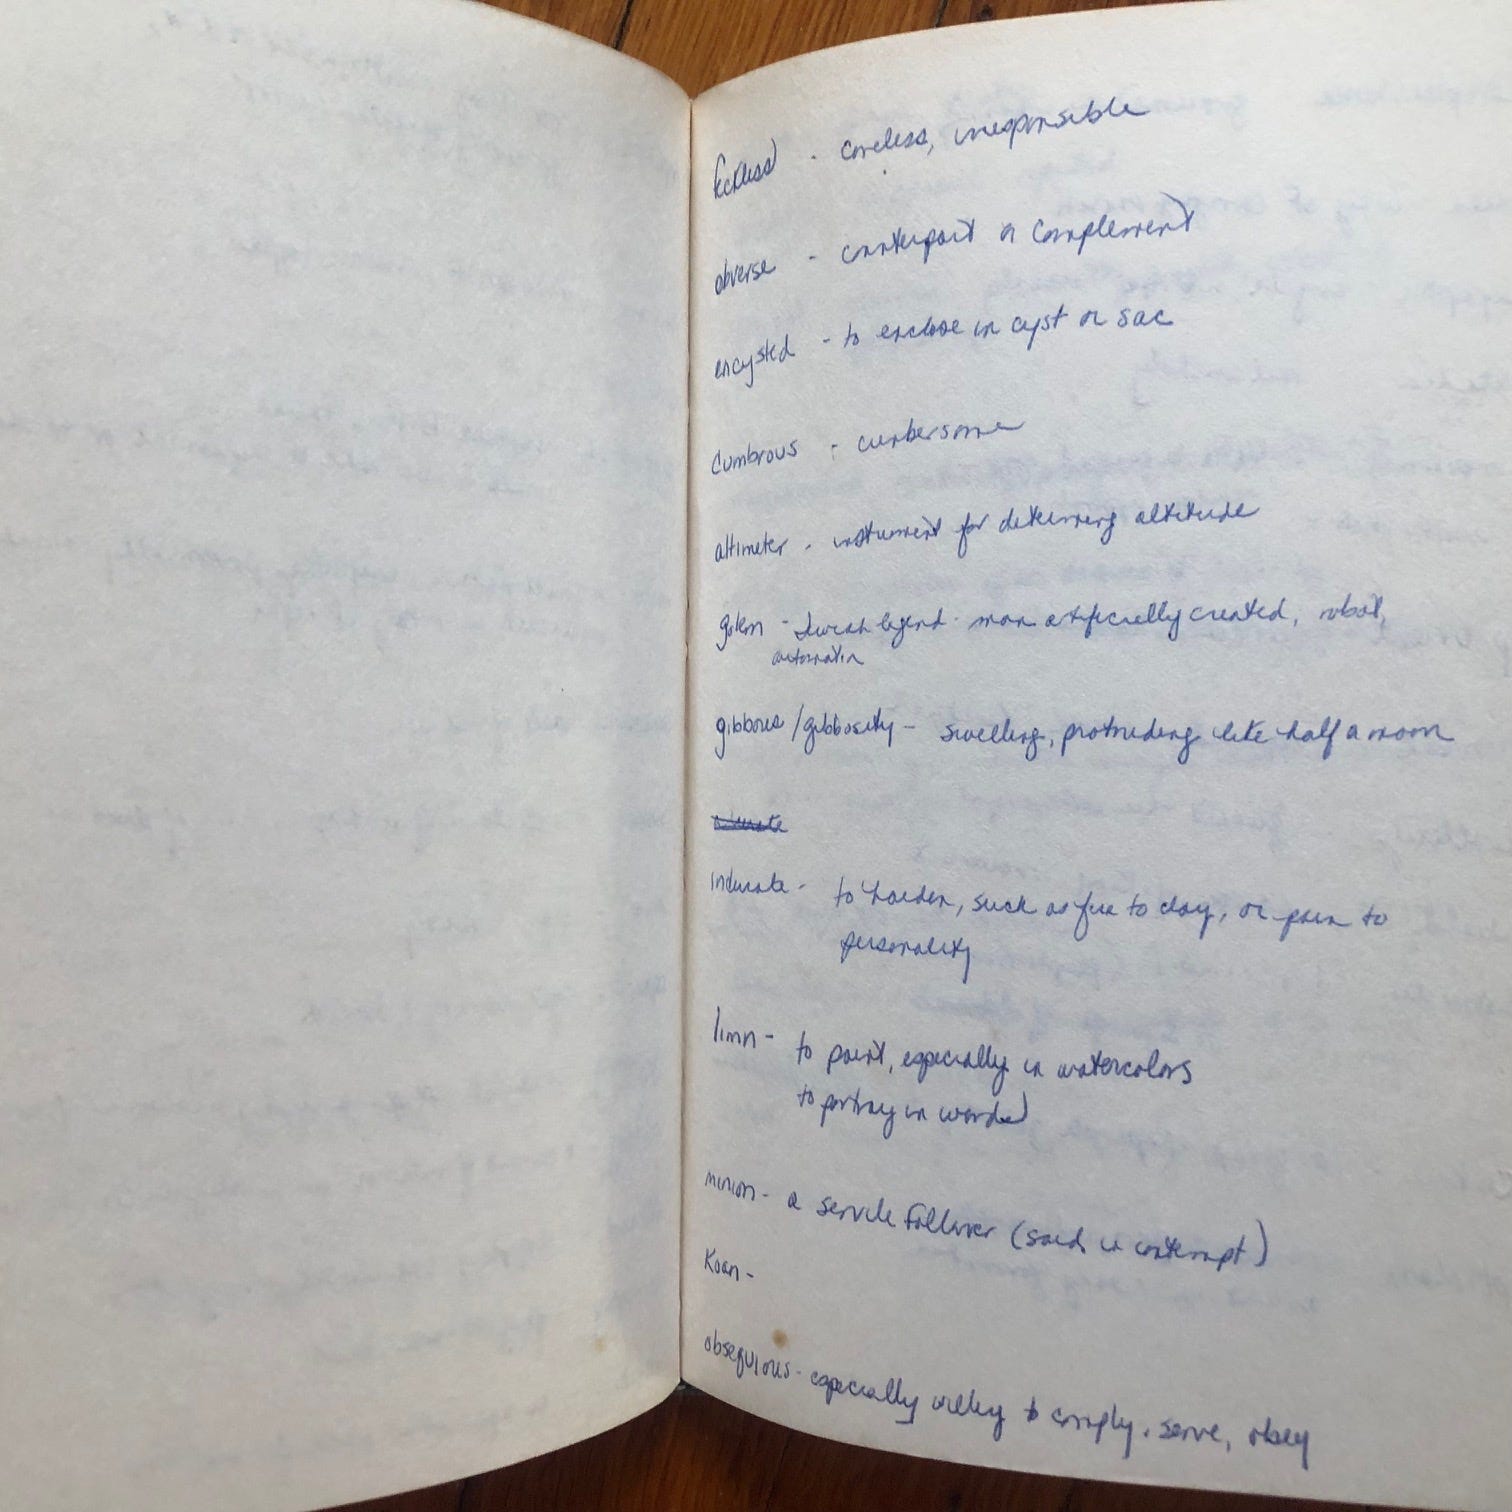 feckless - careless, irresponsible
obverse - counterpart or complement
encysted - to enclose in cyst or sac
cumbrous - cumbersome
altimeter - instrument for determing altitude
golem - Jewish legend - man artificially created, robot,
automatin
gibbous / gibbosity - swelling, protruding like half a moon
indurate - to harden, such as fire to clay, or pain to
personality
limn - to paint, especially in watercolors
to portray in words
minion - a servile follower (said in contempt)
Koan -
obsequious - especially willing to comply, serve, obey